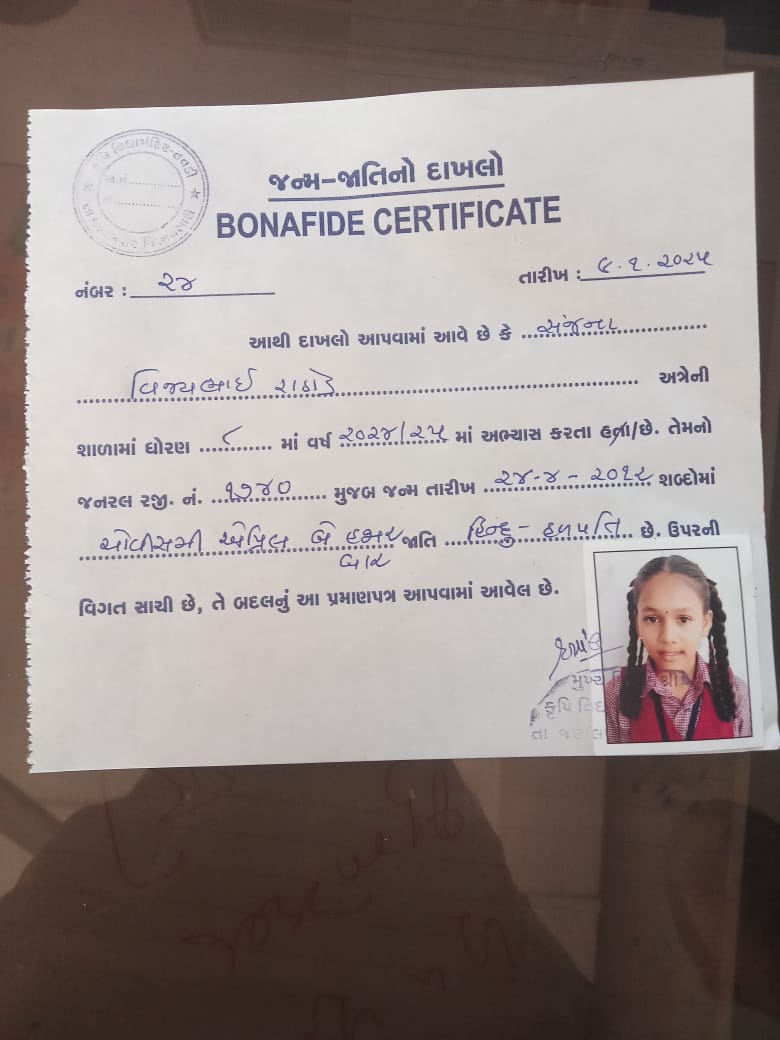 કૃષિ વિદ્યામંદિર-તવડી
જન્મ-જાતિનો દાખલો
BONAFIDE CERTIFICATE
નંબર : ૨૪
તારીખ : ૯.૧.૨૦૨૫
આથી દાખલો આપવામાં આવે છે કે સંજના
વિજયભાઈ રાઠોડ અત્રેની
શાળામાં ધોરણ ૮ માં વર્ષ ૨૦૨૪/૨૫ માં અભ્યાસ કરતા હતા/છે. તેમનો
જનરલ રજી. નં. ૧૭૪૦ મુજબ જન્મ તારીખ ૨૪-૪-૨૦૧૨ શબ્દોમાં
ચોવીસમી એપ્રિલ બે હજાર જાતિ હિન્દુ-હળપતિ છે. ઉપરની
બાર
વિગત સાચી છે, તે બદલનું આ પ્રમાણપત્ર આપવામાં આવેલ છે.
કૃષિ
તા